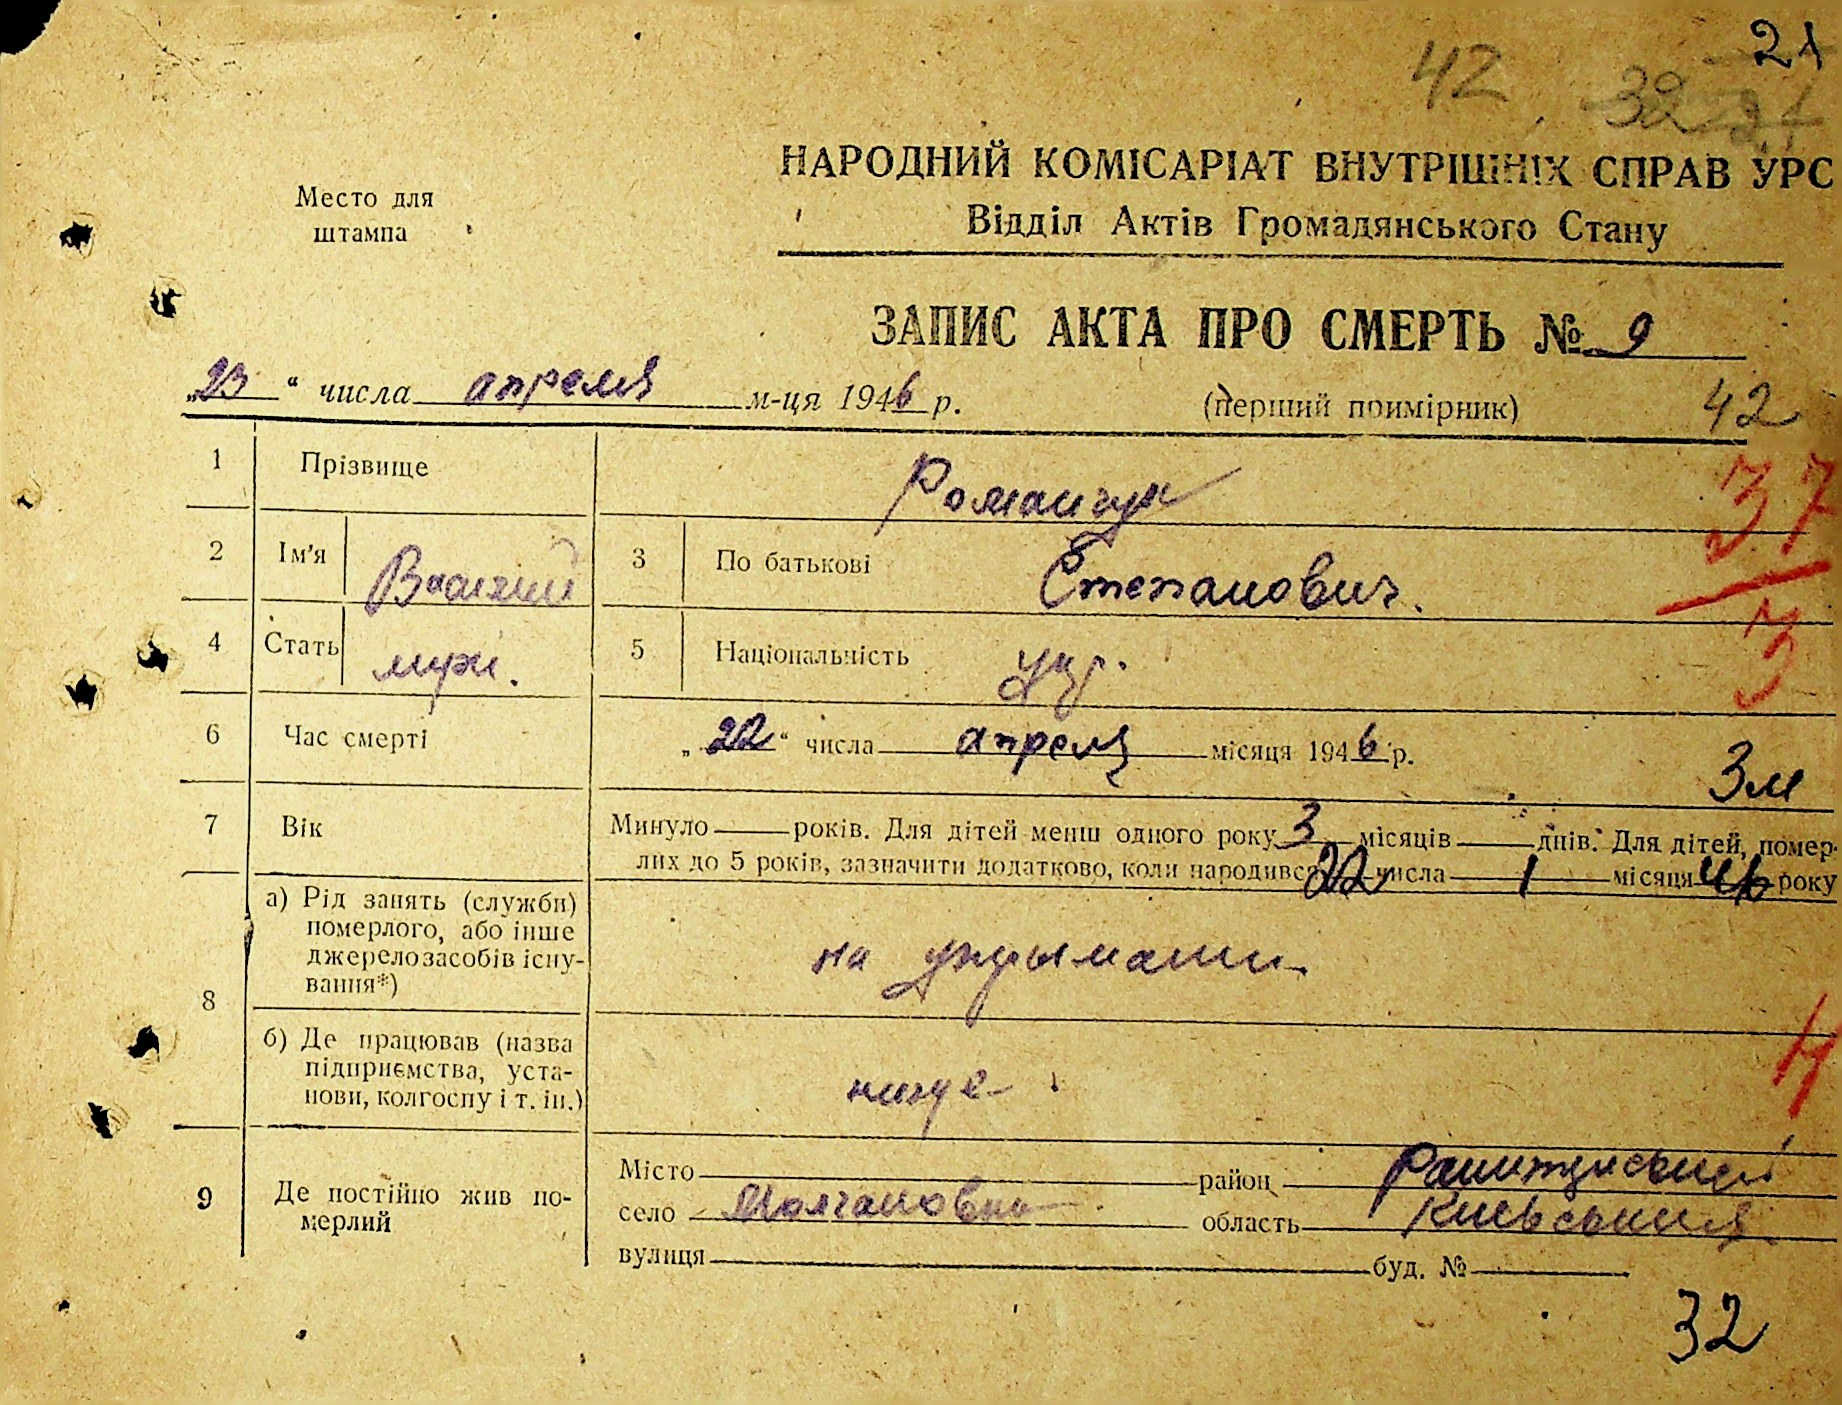 21
42 32
НАРОДНИЙ КОМІСАРІАТ ВНУТРІШНІХ СПРАВ УРС
Место для
штампа
Відділ Актів Громадянського Стану
ЗАПИС АКТА ПРО СМЕРТЬ № 9
„23“ числа апреля м-ця 1946 р. (перший примірник) 42
1 Прізвище Романчук
37
2 Ім'я Василий 3 По батькові Степанович.
3
4 Стать муж. 5 Національність укр.
6 Час смерті „22“ числа апреля місяця 1946 р.
3м
7 Вік Минуло роківּ. Для дітей менш одного року 3 місяців днів. Для дітей, помер-
лих до 5 років, зазначити додатково, коли народився 22 числа 1 місяця 46 року
8 а) Рід занять (служби)
померлого, або інше
джерело засобів існу-
вання*)
на
б) Де працював (назва
підприємства, уста-
нови, колгоспу і т. ін.)
9 Де постійно жив по-
мерлий
Місто район
село Молчановка область Киевськия
вулиця буд. №
32